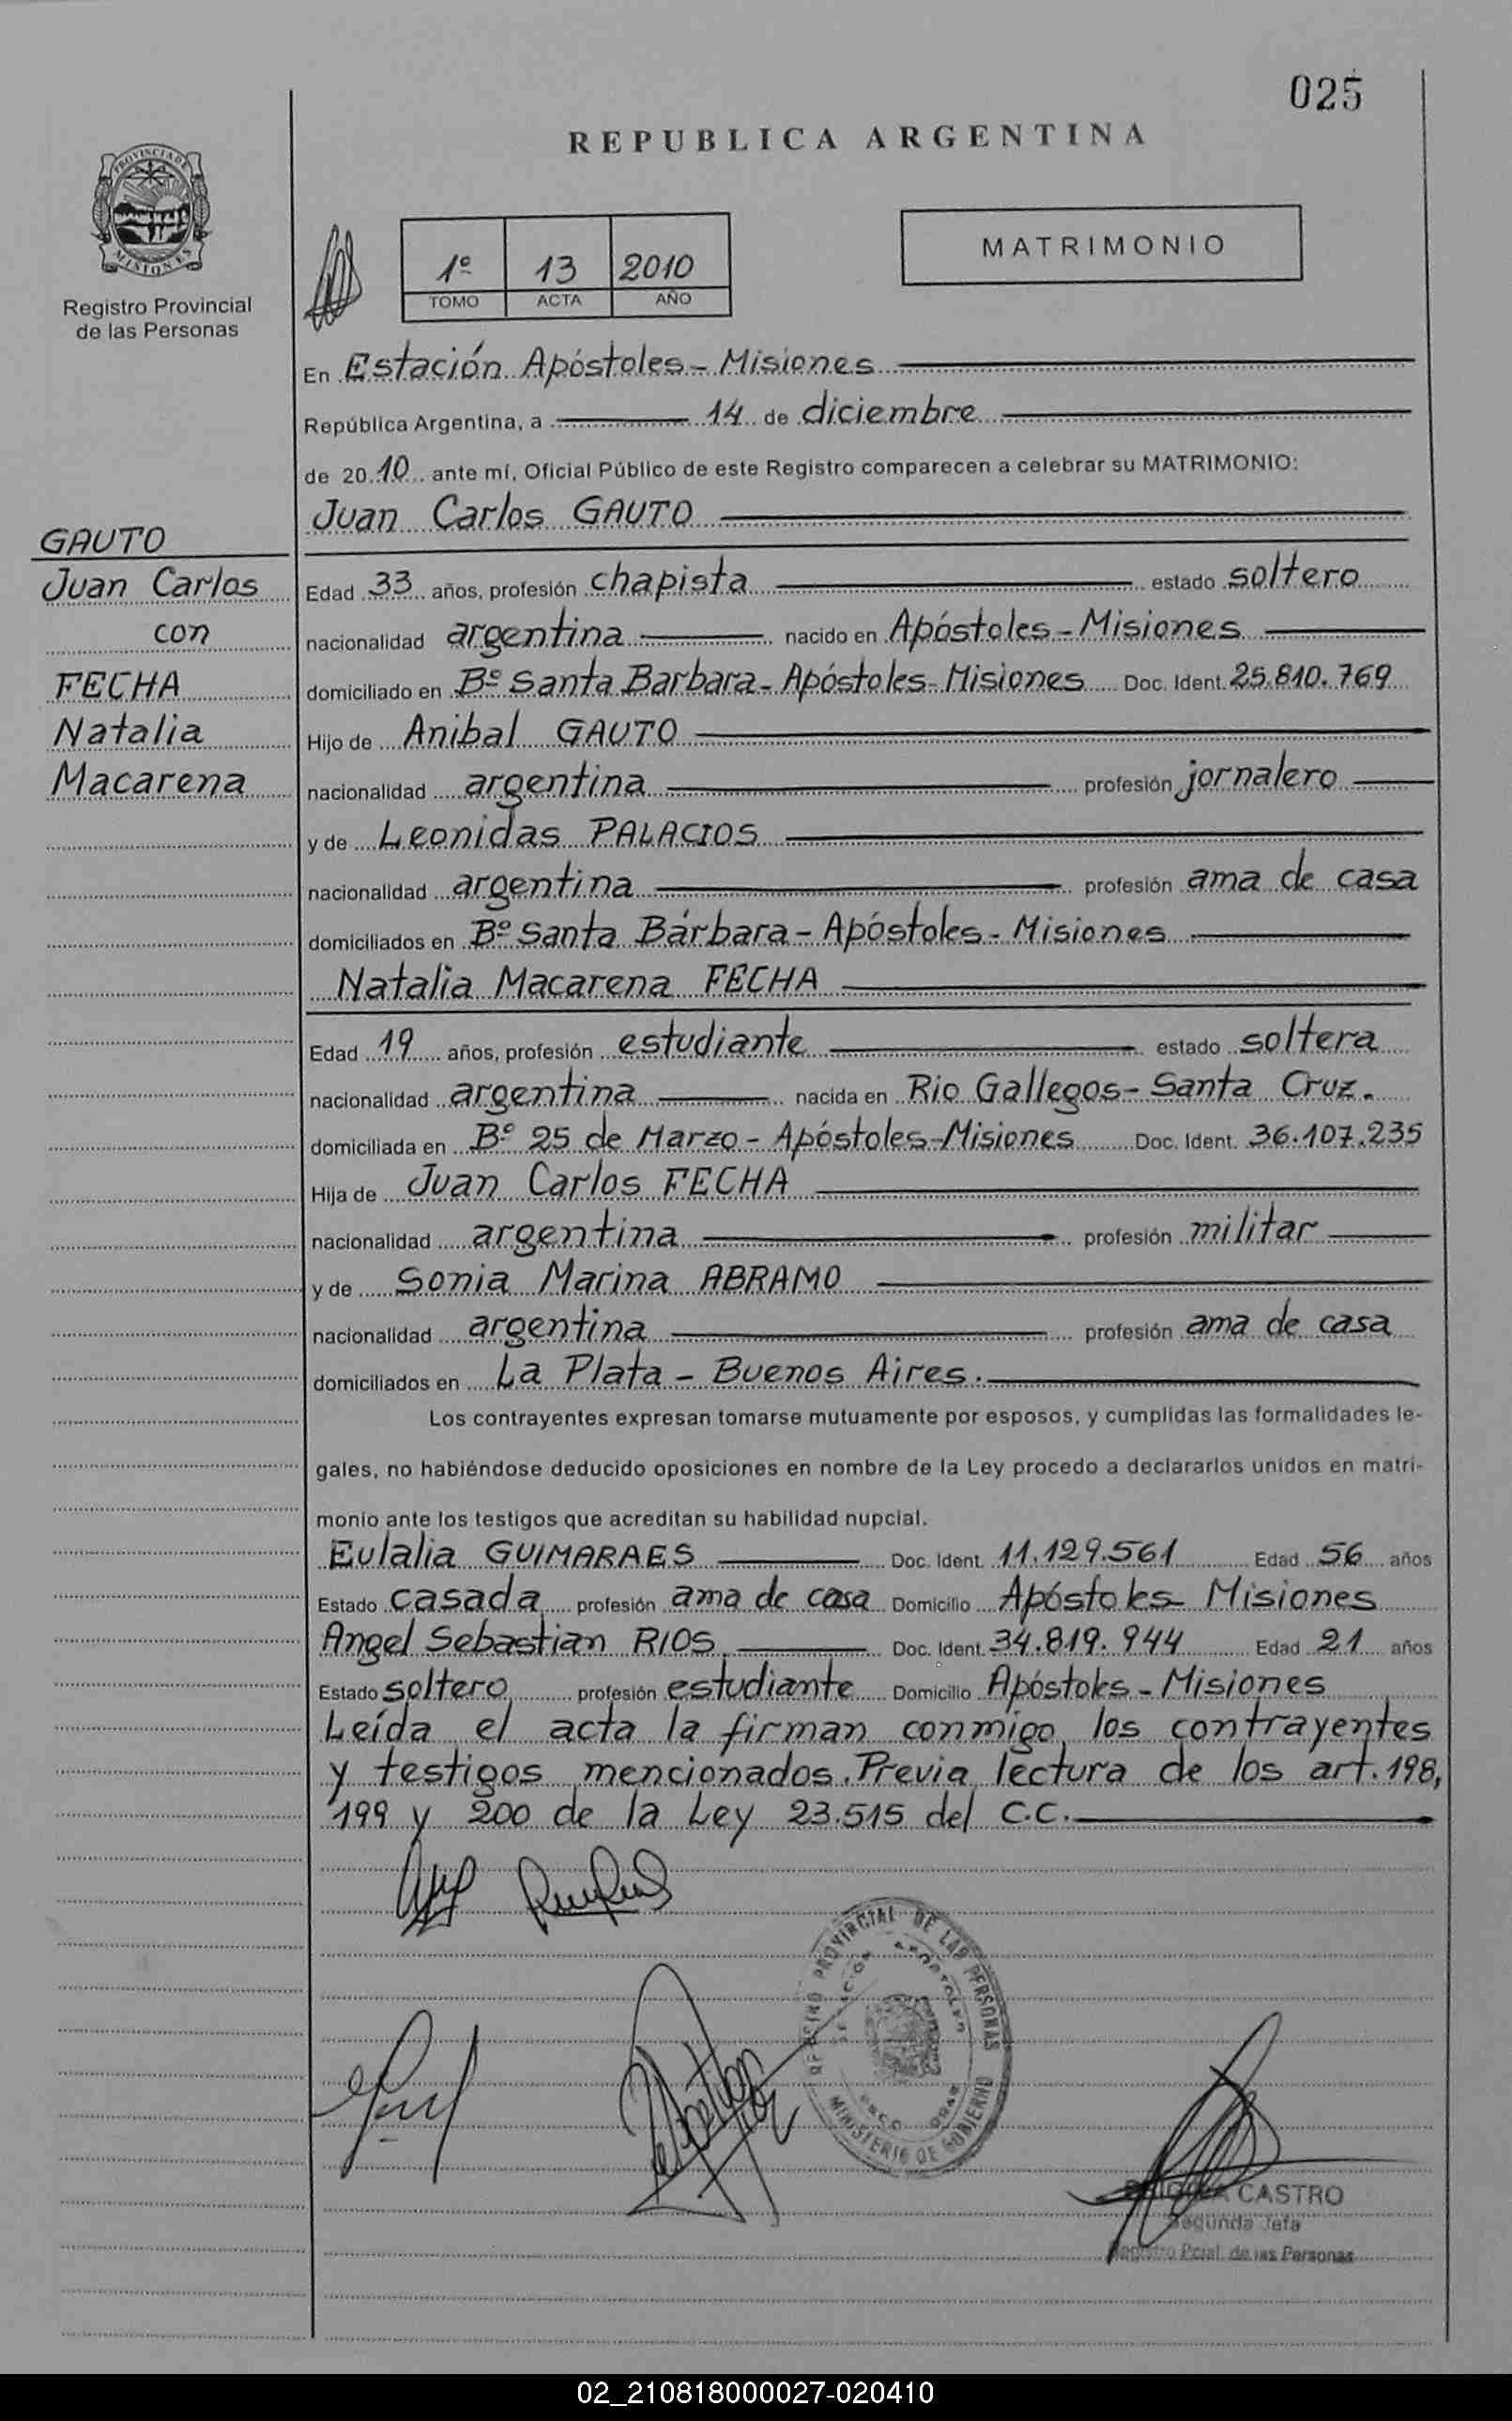 025
REPUBLICA ARGENTINA
PROVINCIA DE
MISIONES
Registro Provincial
de las Personas
1º 13 2010
TOMO ACTA AÑO
MATRIMONIO
En Estación Apóstoles - Misiones
República Argentina, a 14 de diciembre
de 2010 ante mí, Oficial Público de este Registro comparecen a celebrar su MATRIMONIO:
Juan Carlos GAUTO
GAUTO
Juan Carlos
con
FECHA
Natalia
Macarena
Edad 33 años, profesión chapista estado soltero
nacionalidad argentina nacido en Apóstoles - Misiones
domiciliado en Bº Santa Barbara - Apóstoles - Misiones Doc. Ident. 25.810.769
Hijo de Anibal GAUTO
nacionalidad argentina profesión jornalero
y de Leonidas PALACIOS
nacionalidad argentina profesión ama de casa
domiciliados en Bº Santa Bárbara - Apóstoles - Misiones
Natalia Macarena FECHA
Edad 19 años, profesión estudiante estado soltera
nacionalidad argentina nacida en Rio Gallegos - Santa Cruz.
domiciliada en Bº 25 de Marzo - Apóstoles - Misiones Doc. Ident. 36.107.235
Hija de Juan Carlos FECHA
nacionalidad argentina profesión militar
y de Sonia Marina ABRAMO
nacionalidad argentina profesión ama de casa
domiciliados en La Plata - Buenos Aires.
Los contrayentes expresan tomarse mutuamente por esposos, y cumplidas las formalidades le-
gales, no habiéndose deducido oposiciones en nombre de la Ley procedo a declararlos unidos en matri-
monio ante los testigos que acreditan su habilidad nupcial.
Eulalia GUIMARAES Doc. Ident. 11.129.561 Edad 56 años
Estado casada profesión ama de casa Domicilio Apóstoles - Misiones
Angel Sebastian RIOS Doc. Ident. 34.819.944 Edad 21 años
Estado soltero profesión estudiante Domicilio Apóstoles - Misiones
Leída el acta la firman conmigo los contrayentes
y testigos mencionados. Previa lectura de los art. 198,
199 y 200 de la Ley 23.515 del C.C.
REGISTRO PROVINCIAL DE LAS PERSONAS
MINISTERIO DE GOBIERNO
CASTRO
Segunda Jefa
Registro Pcial. de las Personas
02_210818000027-020410